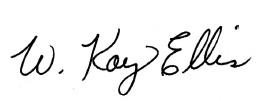 W. Kay Ellis